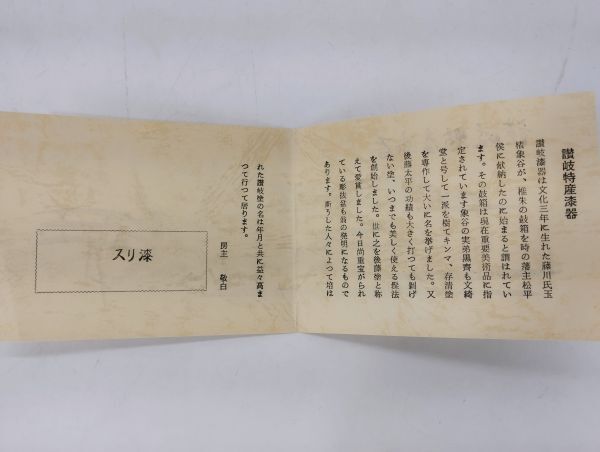 讃岐特産漆器
讃岐漆器は文化三年に生れた藤川氏玉
楮象谷が、椎朱の鼓箱を時の藩主松平
侯に献納したのに始まると謂はれてい
ます。その鼓箱は現在重要美術品に指
定されています象谷の実弟黒齋も文綺
堂と号して一派を樹てキンマ、存清塗
を専作して大いに名を挙げました。又
後藤太平の功績も大きく打つても剥げ
ない塗、いつまでも美しく使える怪法
を創始しました。世に之を後藤塗と称
えて愛賞しました。今日尚重宝がられ
ている彫抜盆も翁の発明になるもので
あります。斯うした人々によつて培は
れた讃岐塗の名は年月と共に益々高ま
つて行つて居ります。
房主 敬白
スリ漆